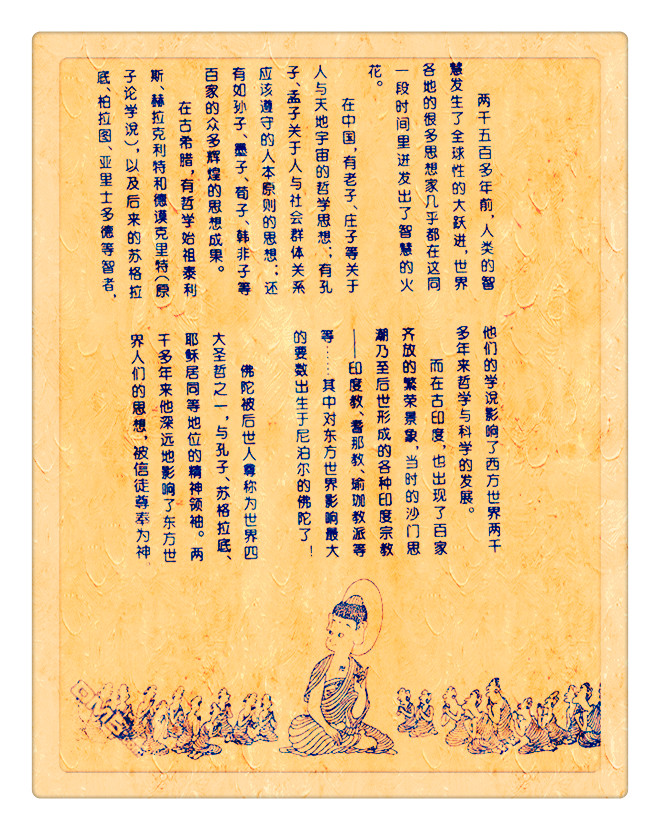 两千五百多年前，人类的智
慧发生了全球性的大跃进，世界
各地的很多思想家几乎都在这同
一段时间里迸发出了智慧的火
花。
在中国，有老子、庄子等关于
人与天地宇宙的哲学思想；有孔
子、孟子关于人与社会群体关系
应该遵守的人本原则的思想；还
有如孙子、墨子、荀子、韩非子等
百家的众多辉煌的思想成果。
在古希腊，有哲学始祖泰利
斯、赫拉克利特和德谟克里特（原
子论学说），以及后来的苏格拉
底、柏拉图、亚里士多德等智者，
他们的学说影响了西方世界两千
多年来哲学与科学的发展。
而在古印度，也出现了百家
齐放的繁荣景象，当时的沙门思
潮乃至后世形成的各种印度宗教
——印度教、耆那教、瑜珈教派等
等……其中对东方世界影响最大
的要数出生于尼泊尔的佛陀了！
佛陀被后世人尊称为世界四
大圣哲之一，与孔子、苏格拉底、
耶稣居同等地位的精神领袖。两
千多年来他深远地影响了东方世
界人们的思想，被信徒尊奉为神